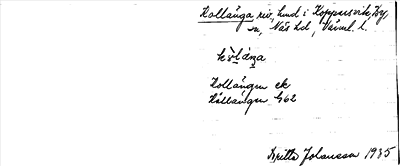 Kollånga, riv, hmd i Koppursvik, By,
sn, Näs hd, Värml. l.
kòlåŋa
Kollången ek
Kållången G62
Britta Johansson 1935